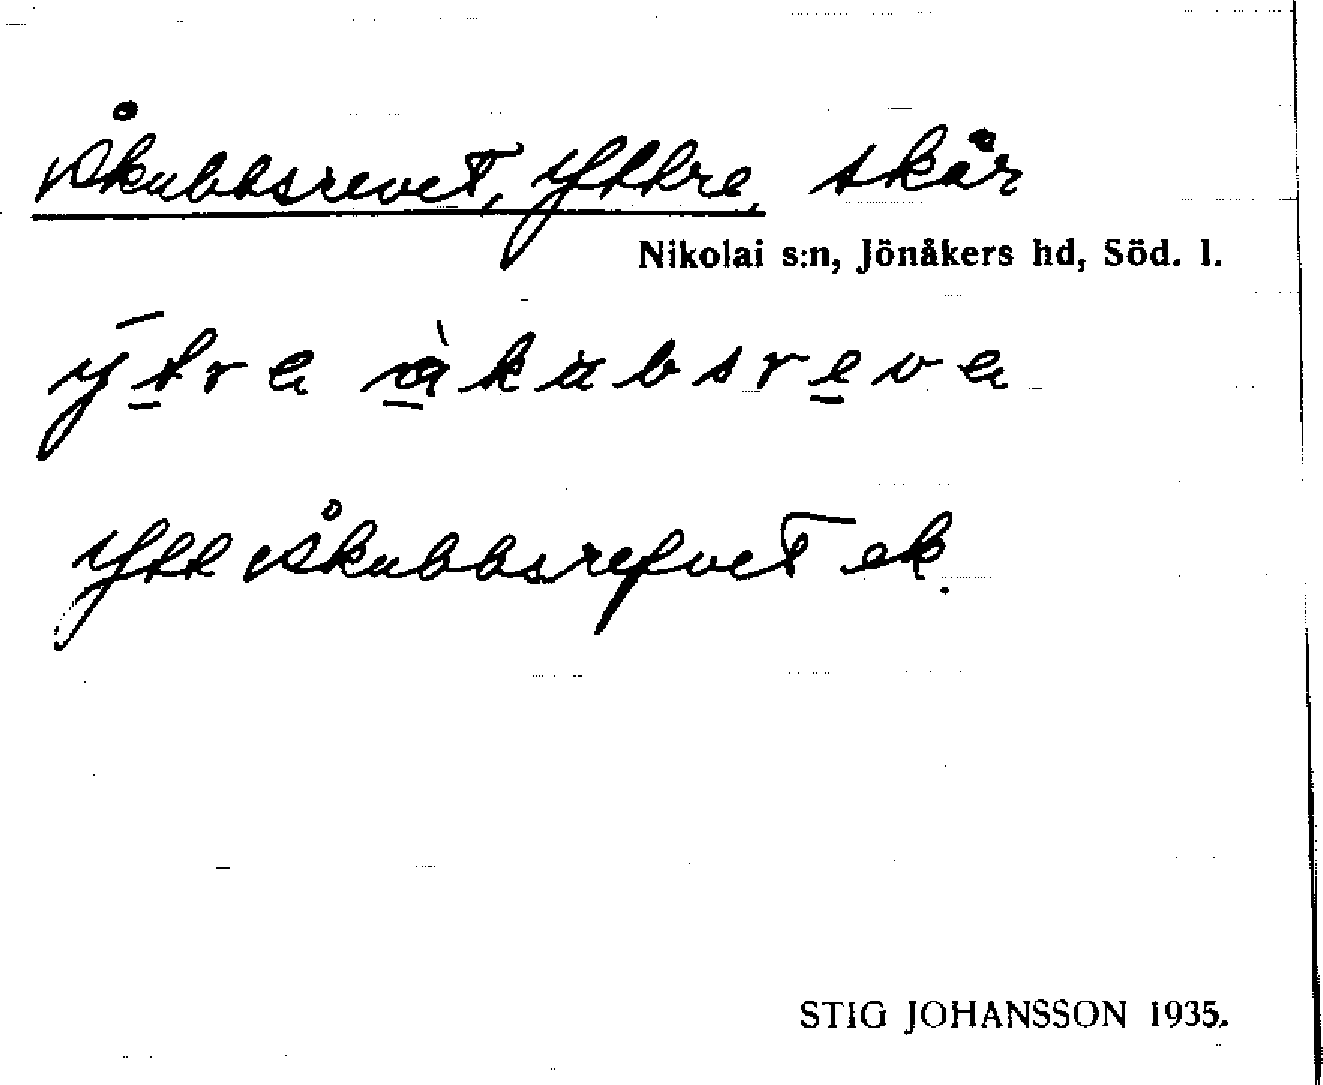 Åkubbsrevet, Yttre, skär
Nikolai s:n, Jönåkers hd, Söd. l.
ytra åkubsreva
Ytt Åkubbsrefvet ek.
STIG JOHANSSON 1935.